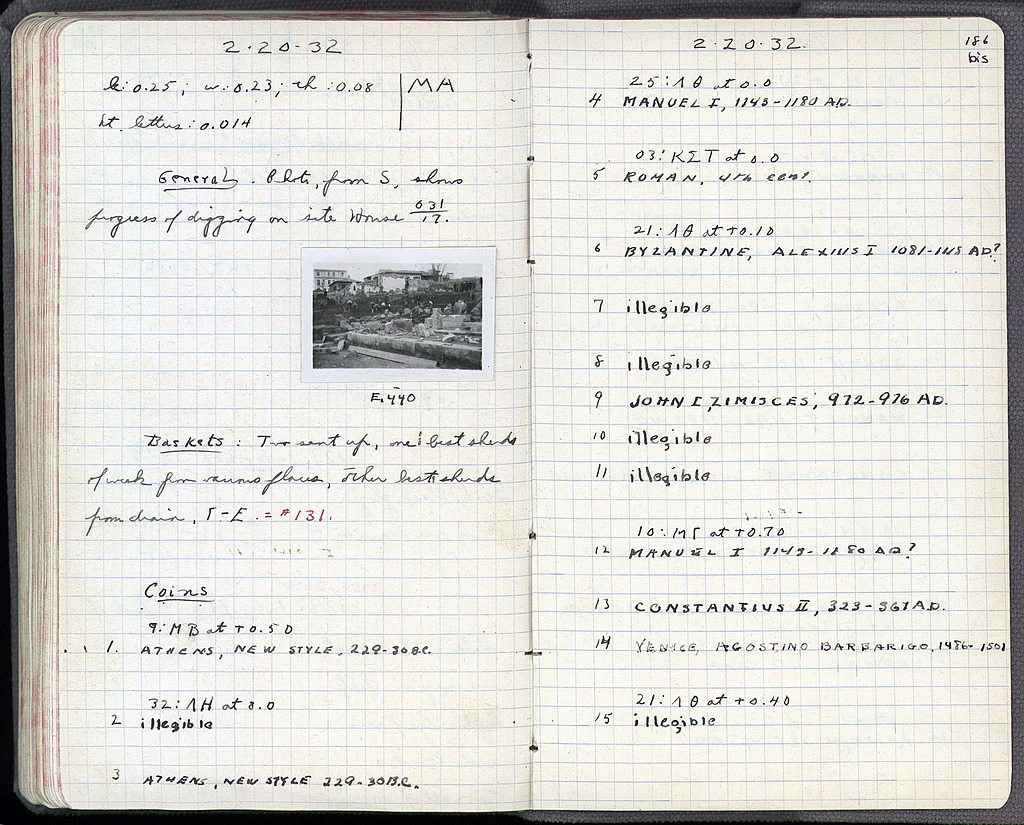 2-20-32
h: 0.25; w: 0.23; th: 0.08 | MA
ht. letters: 0.014
General. Photo, from S, shows
progress of digging on site House 631/17.
E.440
Baskets: Two sent up, one: best sherds
of week from various places, other best sherds
from drain, Γ-E. = #131.
Coins
9: MB at +0.50
1. ATHENS, NEW STYLE, 229-30 B.C.
32: ΛH at 0.0
2 illegible
3 ATHENS, NEW STYLE 229-30 B.C.
2-20-32.
186
bis
25: ΛΘ at 0.0
4 MANUEL I, 1143-1180 AD.
03: KΣT at 0.0
5 ROMAN, 4th cent.
21: ΛΘ at +0.10
6 BYZANTINE, ALEXIUS I 1081-1118 AD?
7 illegible
8 illegible
9 JOHN I, ZIMISCES, 972-976 AD.
10 illegible
11 illegible
10: MΓ at +0.70
12 MANUEL I 1143-1180 AD?
13 CONSTANTIUS II, 323-361 A.D.
14 VENICE, AGOSTINO BARBARIGO, 1486-1501
21: ΛΘ at +0.40
15 illegible